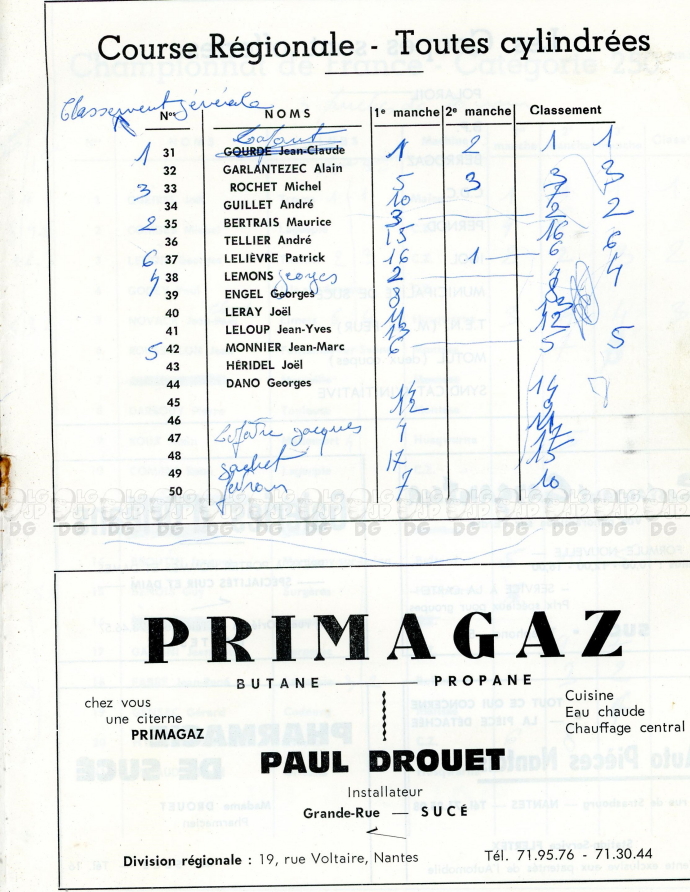 Course Régionale - Toutes cylindrées
Classement générale
Nos NOMS 1e manche 2e manche Classement
Lafont
1 31 GOURDE Jean-Claude 1 2 1 1
32 GARLANTEZEC Alain
3 33 ROCHET Michel 5 3 3 3
34 GUILLET André 10 7
2 35 BERTRAIS Maurice 3 2 2
36 TELLIER André 15 16
6 37 LELIÈVRE Patrick 16 1 6 6
4 38 LEMONS georges 2 4 4
39 ENGEL Georges 8 8
40 LERAY Joël 11
41 LELOUP Jean-Yves 13 12
5 42 MONNIER Jean-Marc 6 5 5
43 HÉRIDEL Joël
44 DANO Georges 14 14
45 12 9
46
47 jacques 4
48 17
49 sachet 17 15
50 7 10
PRIMAGAZ
BUTANE PROPANE
chez vous
une citerne
PRIMAGAZ
Cuisine
Eau chaude
Chauffage central
PAUL DROUET
Installateur
Grande-Rue — SUCÉ
Division régionale : 19, rue Voltaire, Nantes Tél. 71.95.76 - 71.30.44